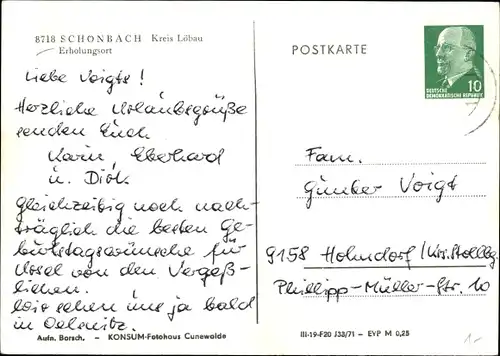 8718 SCHONBACH Kreis Löbau
Erholungsort
Liebe Voigts!
Herzliche Urlaubsgrüße
senden Euch
Karin, Eberhard
u. Dirk
Gleichzeitig noch nach-
träglich die besten Ge-
burtstagswünsche für
Ursel von den Vergeß-
lichen.
Wir sehen uns ja bald
in Oelsnitz.
Aufn. Borsch. – KONSUM-Fotohaus Cunewalde
POSTKARTE
DEUTSCHE
DEMOKRATISCHE REPUBLIK
10
Fam.
Günter Voigt
9158 Hohndorf/Krs. Stollbg.
Phillipp-Müller-Str. 10
III-19-F20 J33/71 – EVP M 0,25